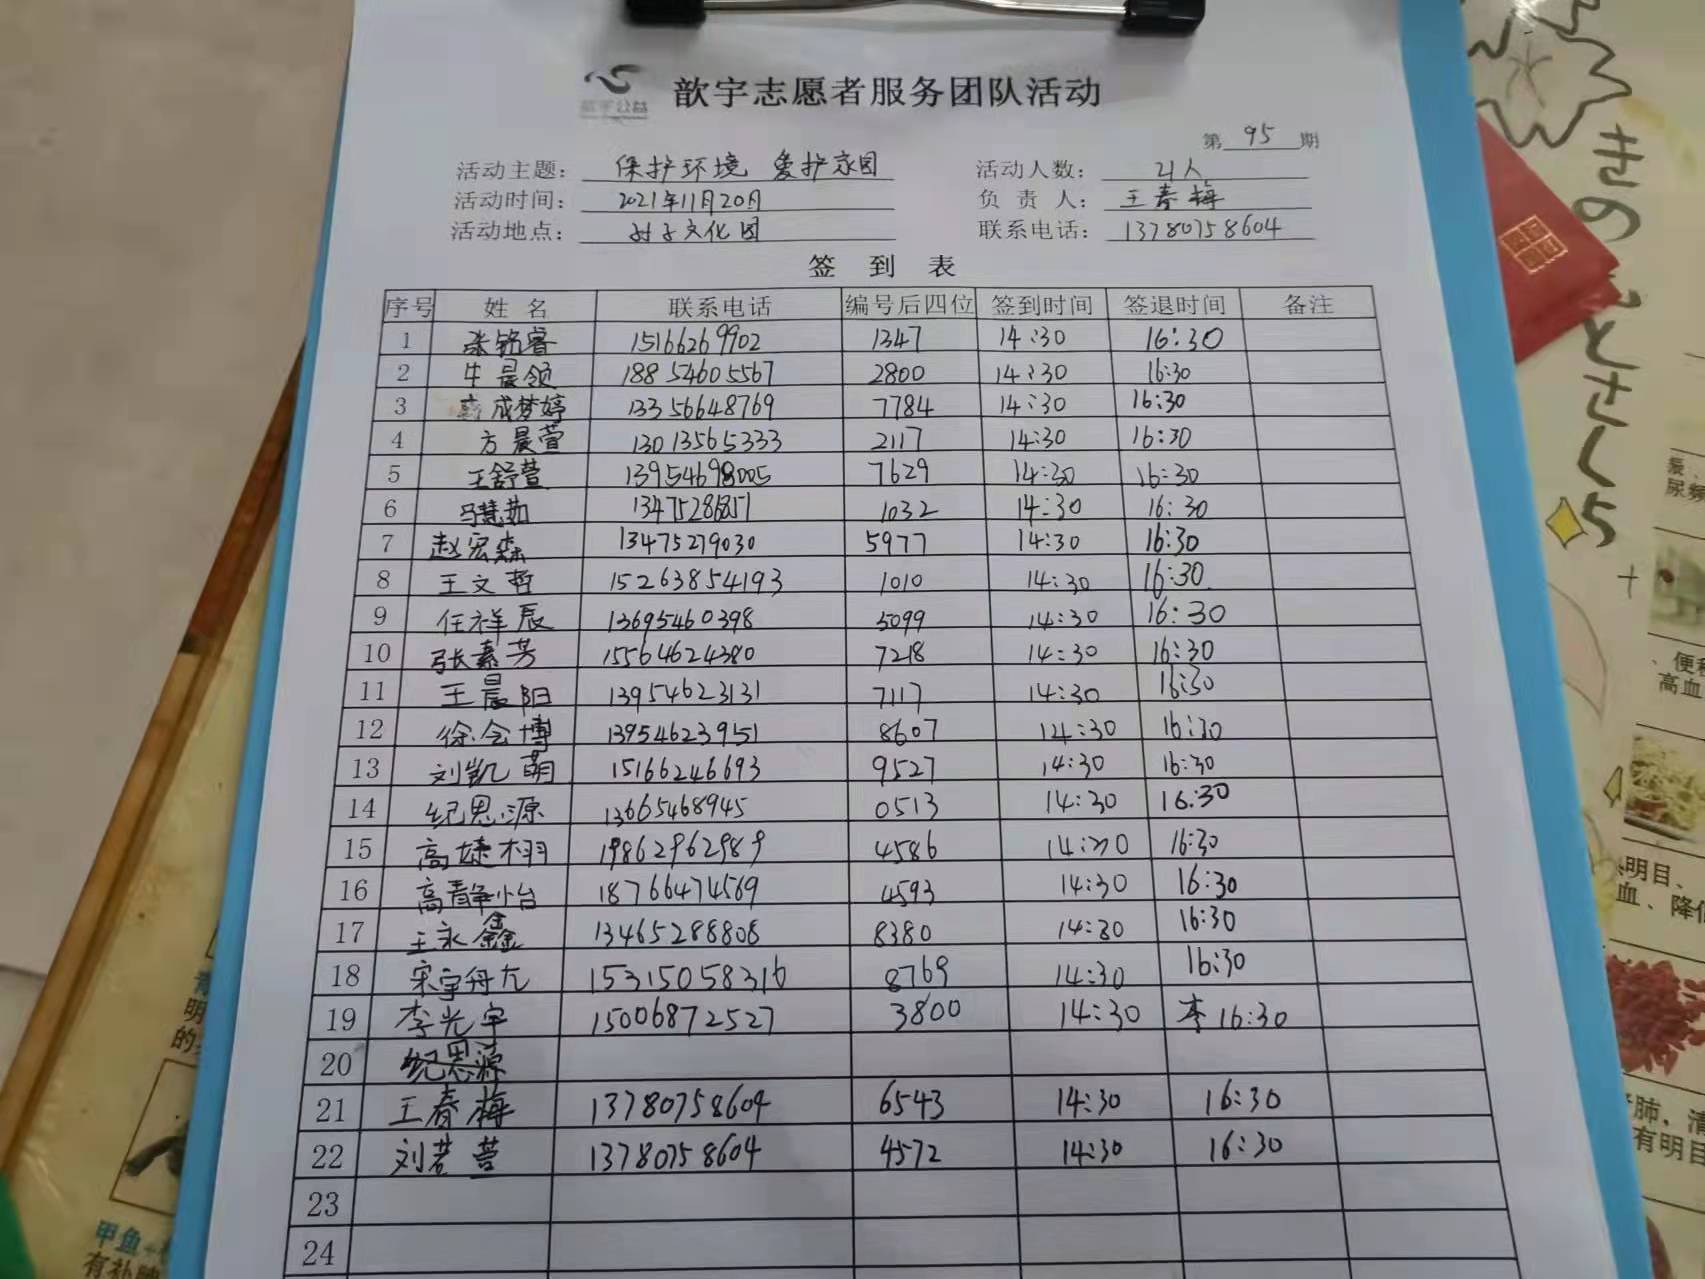 歆宇公益
歆宇志愿者服务团队活动
第 95 期
活动主题: 保护环境 爱护家园 活动人数: 21人
活动时间: 2021年11月20日 负责人: 王春梅
活动地点: 孙子文化园 联系电话: 13780758604
签到表
序号 姓名 联系电话 编号后四位 签到时间 签退时间 备注
1 张铭睿 15166269902 1347 14:30 16:30
2 牛晨领 18854605567 2800 14:30 16:30
3 成梦婷 13356648769 7784 14:30 16:30
4 方晨萱 13013565333 2117 14:30 16:30
5 王舒萱 13954698005 7629 14:30 16:30
6 马慧茹 1347528 1032 14:30 16:30
7 赵宏森 13475279030 5977 14:30 16:30
8 王文哲 15263854193 1010 14:30 16:30
9 任祥辰 13695460398 5099 14:30 16:30
10 张素芳 15564624380 7218 14:30 16:30
11 王晨阳 13954623131 7117 14:30 16:30
12 徐会博 13954623951 8607 14:30 16:30
13 刘凯萌 15166246693 9527 14:30 16:30
14 纪思源 13665468945 0513 14:30 16:30
15 高婕栩 19862962989 4586 14:30 16:30
16 高静怡 18766474569 4593 14:30 16:30
17 王永鑫 13465288808 8380 14:30 16:30
18 宋宇舟 15315058316 8769 14:30 16:30
19 李光宇 15006872527 3800 14:30 李16:30
20 纪思源
21 王春梅 13780758604 6543 14:30 16:30
22 刘若萱 13780758604 4572 14:30 16:30
23
24
きのもとさくら
尿频
便秘
高血
明目、
血、降低
肺，清
有明目
甲鱼
有补脾